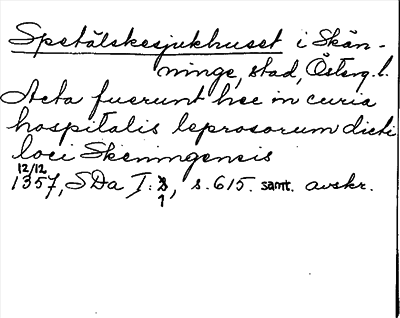 Spetälskesjukhuset i Skän-
ninge, stad, Österg.l.
Acta fuerunt hec in curia
hospitalis leprosorum dicti
loci Skeningensis
12/12
1357, SDa I: 1, s. 615. samt. avskr.